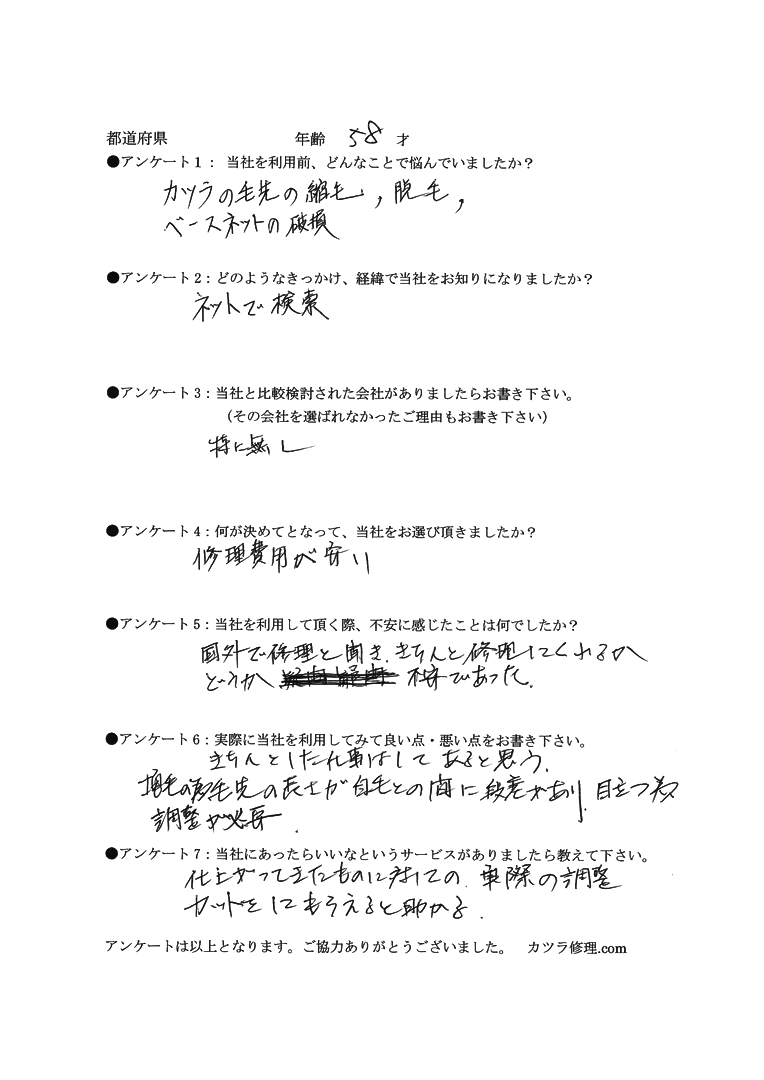 都道府県 年齢 58 才
●アンケート1：当社を利用前、どんなことで悩んでいましたか？
カツラの毛先の縮毛，脱毛，
ベースネットの破損
●アンケート2：どのようなきっかけ、経緯で当社をお知りになりましたか？
ネットで検索
●アンケート3：当社と比較検討された会社がありましたらお書き下さい。
（その会社を選ばれなかったご理由もお書き下さい）
特に無し
●アンケート4：何が決めてとなって、当社をお選び頂きましたか？
修理費用が安い
●アンケート5：当社を利用して頂く際、不安に感じたことは何でしたか？
国外で修理と聞き、きちんと修理してくれるか
どうか 不安であった.
●アンケート6：実際に当社を利用してみて良い点・悪い点をお書き下さい。
きちんとした仕事はしてあると思う.
増毛の毛先の長さが自毛との間に段差があり、目立つ為
調整が必要.
●アンケート7：当社にあったらいいなというサービスがありましたら教えて下さい。
仕上がってきたものに対しての、実際の調整
カットをしてもらえると助かる.
アンケートは以上となります。ご協力ありがとうございました。 カツラ修理.com